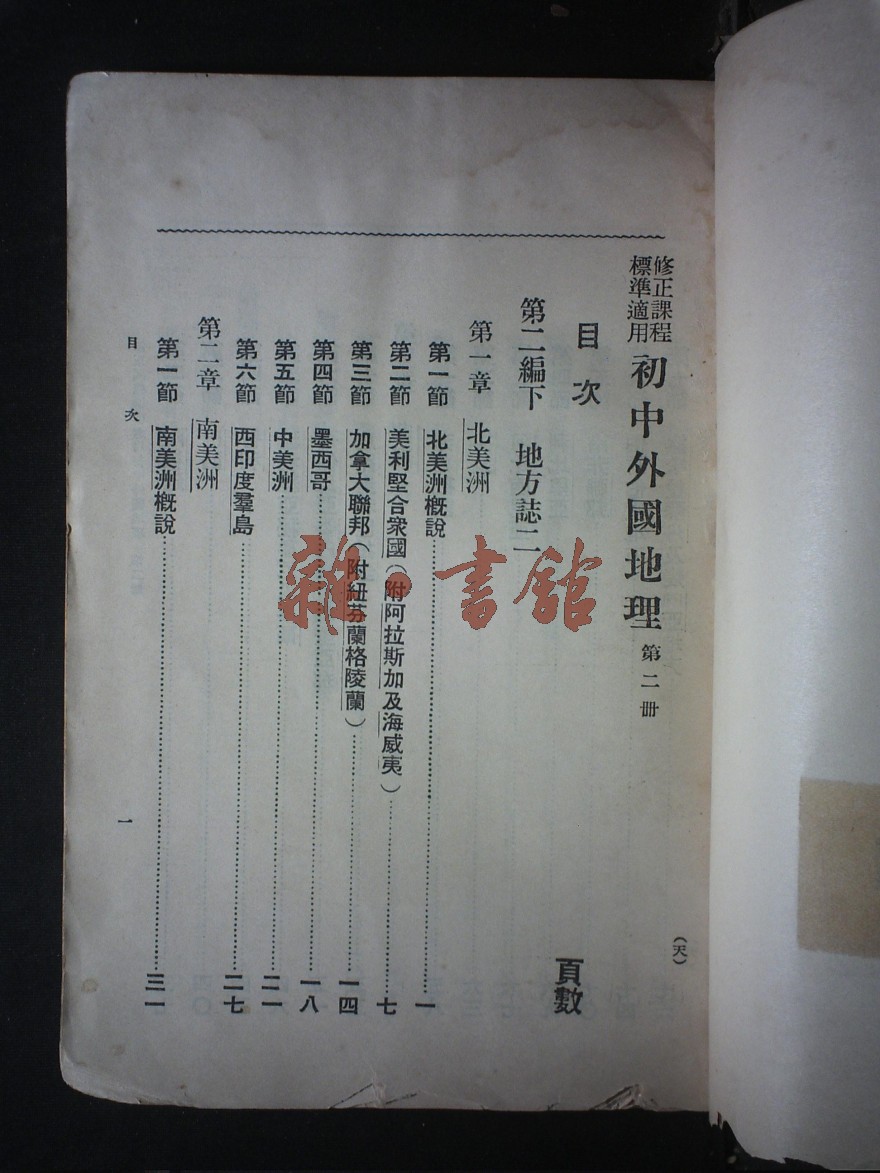 修正課程
標準適用
初中外國地理 第二册
(天)
目次
頁數
第二編下 地方誌二
第一章 北美洲
第一節 北美洲概說……一
第二節 美利堅合衆國(附阿拉斯加及海威夷)……七
第三節 加拿大聯邦(附紐芬蘭格陵蘭)……一四
第四節 墨西哥……一八
第五節 中美洲……二一
第六節 西印度羣島……二七
第二章 南美洲
第一節 南美洲概說……三一
目次
一
雜·書館